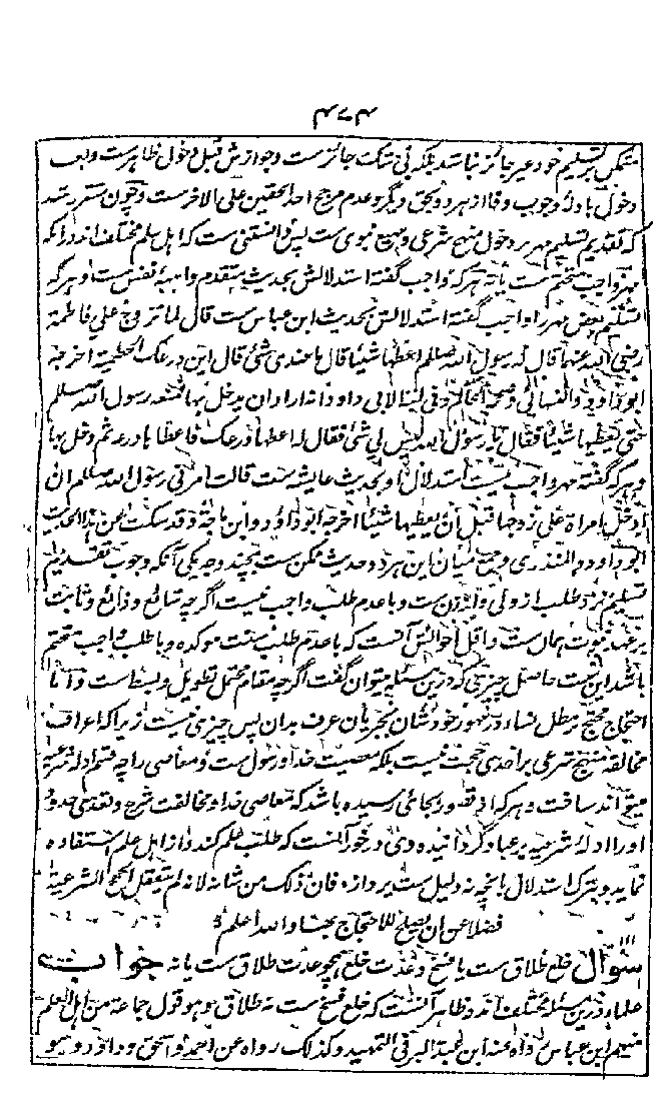 ۴۷۴
متمکن بر تسلیم خود غیر جائز نباشد بلکه بی شک جائز ست و جوازش قبل دخول ظاهرست و بعد
دخول بادلهٔ وجوب وفا از هر دو بحق دیگر و عدم مرجح احد الحقین علی الآخرست و چون
که تقدیم تسلیم مهر بر دخول منهج شرعی و مهیع نبوی ست پس دانستنی ست که اهل علم مختلف اند در آنکه
مهر واجب متحتم ست یا نه هر که واجب گفته استدلالش بحدیث متقدم واهبهٔ نفس ست و هر که
تسلیم بعض مهر را واجب گفته استدلالش بحدیث ابن عباس ست قال لما تزوج علی فاطمة
رضی الله عنها قال له رسول الله صلعم اعطها شیئا قال ما عندی شئ قال این درعک الحطمیة اخرجه
ابو داود والنسائی وصححه الحاکم وفی لفظ لابی داود انه اراد ان یدخل بها فمنعه رسول الله صلعم
حتی یعطیها شیئا فقال یا رسول الله لیس لی شئ فقال له اعطها درعک فاعطاها درعه ثم دخل بها
و هر که گفته مهر واجب نیست استدلال او بحدیث عایشه ست قالت امرنی رسول الله صلعم ان
ادخل امرأة علی زوجها قبل ان یعطیها شیئا اخرجه ابو داؤد وابن ماجة وقد سکت عن هذا الحدیث
ابو داود والمنذری و جمع میان این هر دو حدیث ممکن ست بچند وجه یکی آنکه وجوب تقدیم
تسلیم نزد طلب از ولی وازن ست و با عدم طلب واجب نیست اگرچه شائع و ذائع و ثابت
در عهد نبوت همان ست و اقل احوالش آنست که با عدم طلب سنت موکده و با طلب واجب متحتم
باشد این ست حاصل چیزی که درین مسئله میتوان گفت اگرچه مقام محتمل تطویل و بسط است و اما
احتجاج محتج بر مطل نساء در مهور خود شان بجریان عرف بدان پس چیزی نیست زیرا که اعراف
مخالفهٔ منهج شرعی بر احدی حجت نیست بلکه معصیت خدا و رسول ست و معاصی را چه قسم ادلهٔ شرعیه
میتواند ساخت و هر که از قصور بجائی رسیده باشد که معاصی خدا و مخالفت شرع و تعدی حدود
او را ادلهٔ شرعیه بر عباد گردانیده وی در خور آنست که طلب علم کند و از اهل علم استفاده
نماید و بترک استدلال بآنچه نه دلیل ست پردازد فان ذلک من شأنه لانه لم یتعقل الحجج الشرعیة
فضلا عن ان یصلح للاحتجاج بحثنا والله اعلم
سوال خلع طلاق ست یا فسخ و عدت خلع همچو عدت طلاق ست یا نه جواب
علماء درین مسئله مختلف اند و ظاهر آنست که خلع فسخ ست نه طلاق و هو قول جماعة من اهل العلم
منهم ابن عباس رواه عنه ابن عبد البر فی التمهید وکذلک رواه عن احمد واسحق وداؤد وهو